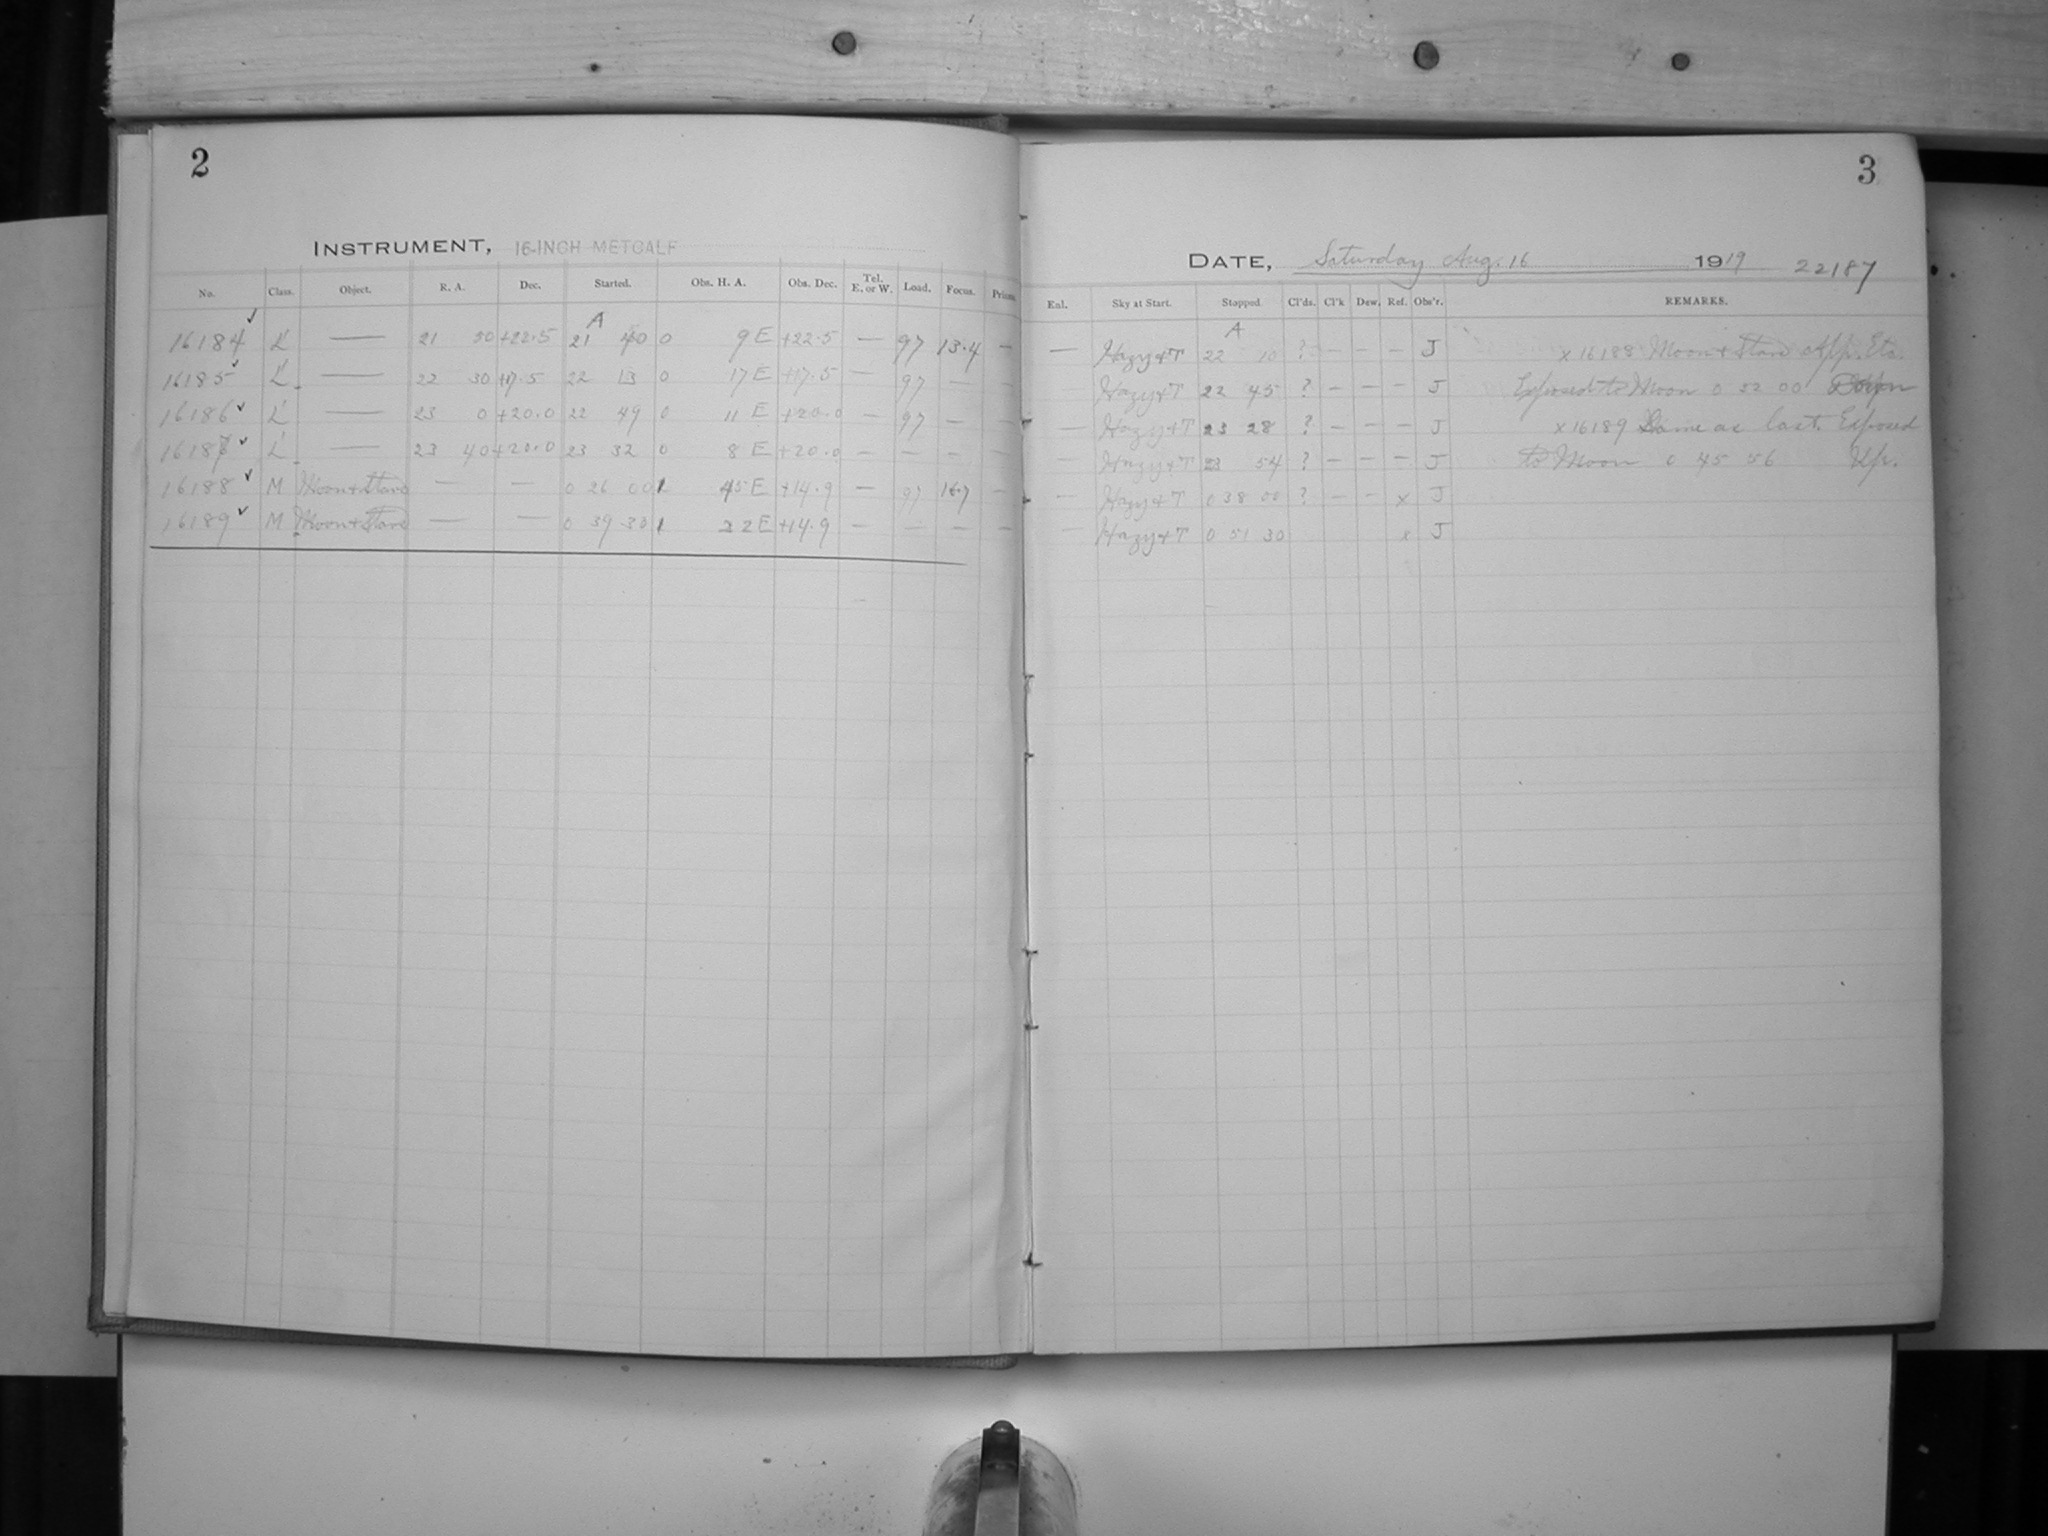 2
INSTRUMENT, 16-INCH METCALF
No. Class. Object. R. A. Dec. Started. Obs. H. A. Obs. Dec. Tel. E. or W. Load. Focus. Prism.
A
16184 ✓ L' — 21 50 +22.5 21 40 0 9 E +22.5 — 97 13.4 —
16185 ✓ L' — 22 30 +17.5 22 13 0 17 E +17.5 — 97 — —
16186 ✓ L' — 23 0 +20.0 22 49 0 11 E +20.0 — 97 — —
16187 ✓ L' — 23 40 +20.0 23 32 0 8 E +20.0 — — — —
16188 ✓ M Moon & Stars — — 0 26 00 1 45 E +14.9 — 97 —
16189 ✓ M Moon & Stars — — 0 39 30 1 22 E +14.9 — — — —
3
DATE, Saturday Aug. 16 1919 22187
Enl. Sky at Start. Stopped Cl'ds. Cl'k Dew. Ref. Obs'r. REMARKS.
A
— Hazy & T 22 10 ? — — — J x 16188 Moon & Stars App. Etc.
Hazy & T 22 45 ? — — — J Exposed to Moon 0 32 00
— Hazy & T 23 28 ? — — — J x 16189 Same as last. Exposed
— Hazy & T 23 54 ? — — — J to Moon 0 45 56 Up.
— Hazy & T 0 38 00 ? — — x J
— Hazy & T 0 51 30 x J